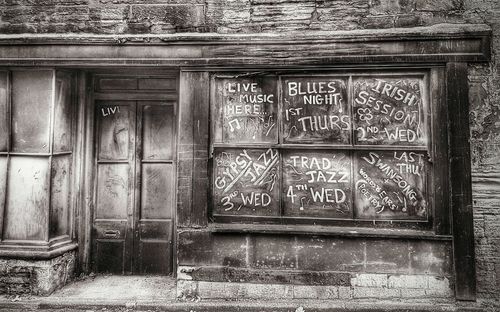 LIV
LIVE
MUSIC
HERE...
BLUES
NIGHT,
1ST THURS
IRISH
SESSION
2ND WED
GYPSY
JAZZ
3RD WED
TRAD
JAZZ
4TH WED
LAST
THU
SWANSONG